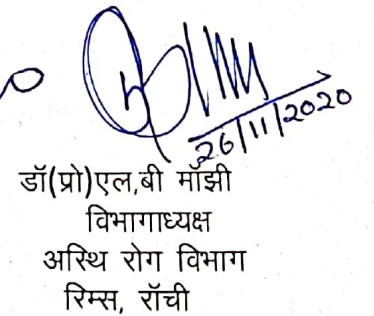 26/11/2020
डॉ(प्रो)एल,बी माँझी
विभागाध्यक्ष
अस्थि रोग विभाग
रिम्स, राँची